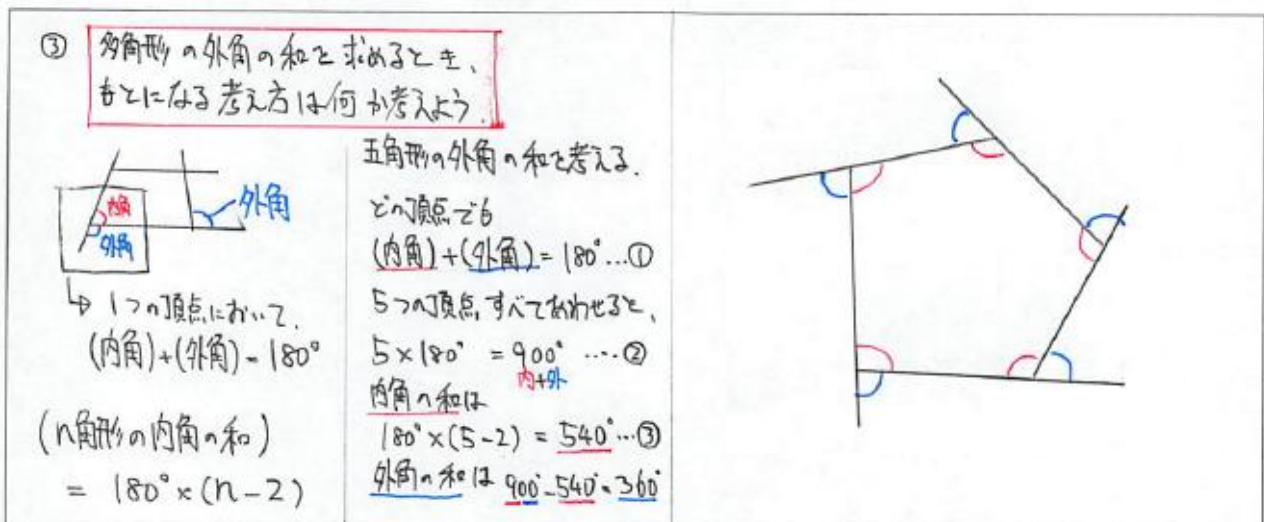 ③ 多角形の外角の和を求めるとき、
もとになる考え方は何か考えよう。
内角
外角
外角
↳ 1つの頂点において、
(内角)+(外角)=180°
(n角形の内角の和)
= 180°×(n-2)
五角形の外角の和を考える。
どの頂点でも
(内角)+(外角)=180°…①
5つの頂点すべてあわせると、
5×180°=900° …②
内+外
内角の和は
180°×(5-2)=540°…③
外角の和は 900°-540°=360°